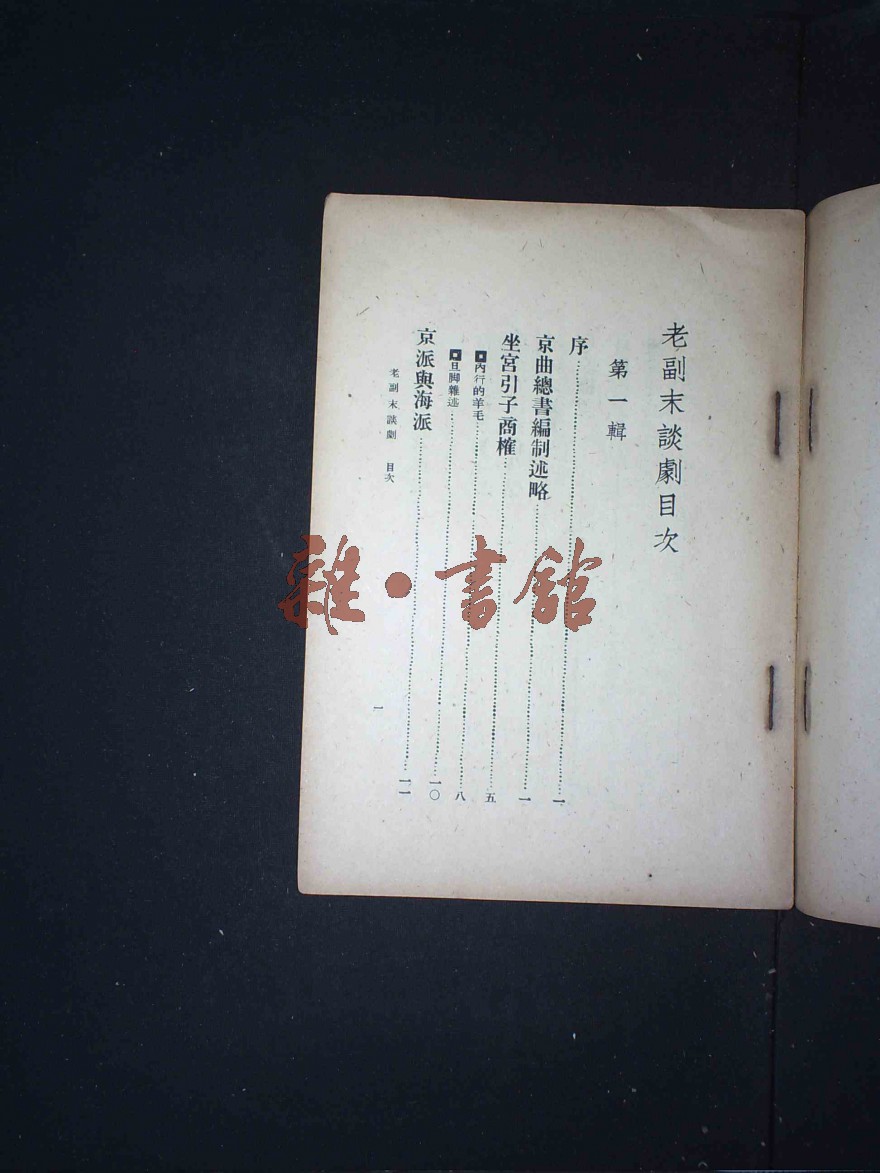 老副末談劇目次
第一輯
序 一
京曲總書編制述略 一
坐宮引子商榷 五
內行的羊毛 八
旦脚雜述 一〇
京派與海派 一一
老副末談劇 目次
一
雜·書館